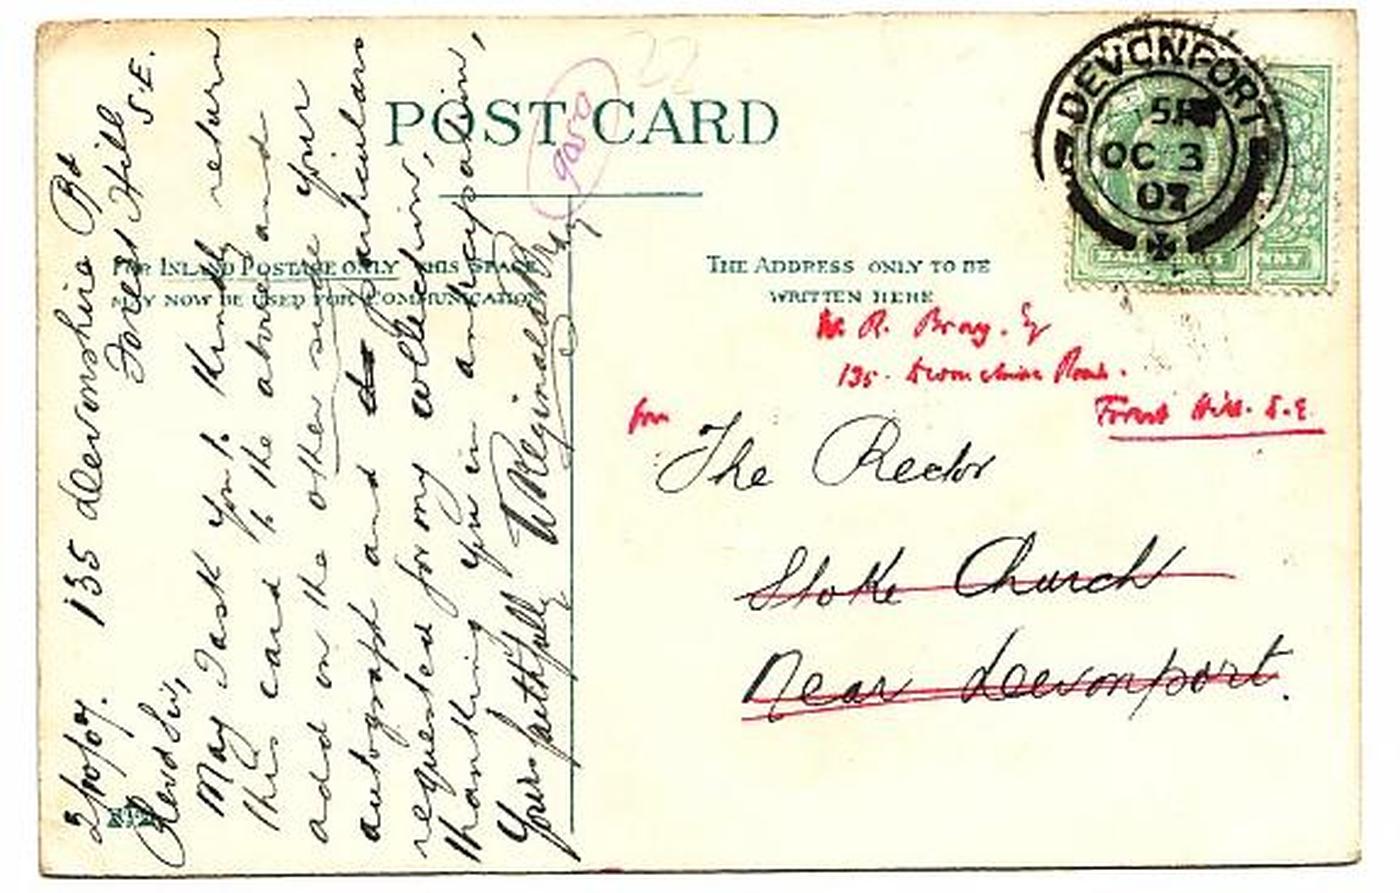 POST CARD
22
9050
FOR INLAND POSTAGE ONLY THIS SPACE
MAY NOW BE USED FOR COMMUNICATION
THE ADDRESS ONLY TO BE
WRITTEN HERE
DEVONPORT
5 P
OC 3
07
HALFPENNY
NNY
2/10/07. 135 Devonshire Rd
Forest Hill
S.E.
Revd Sir,
May I ask you to kindly return
this card to the above and
add on the other side your
autograph and the particulars
requested for my collection,
thanking you in anticipation,
Yours faithfully W Reginald Bray
W. R. Bray. Esq
135. Devonshire Road.
Forest Hill. S.E.
from
The Rector
Stoke Church
Near Devonport.